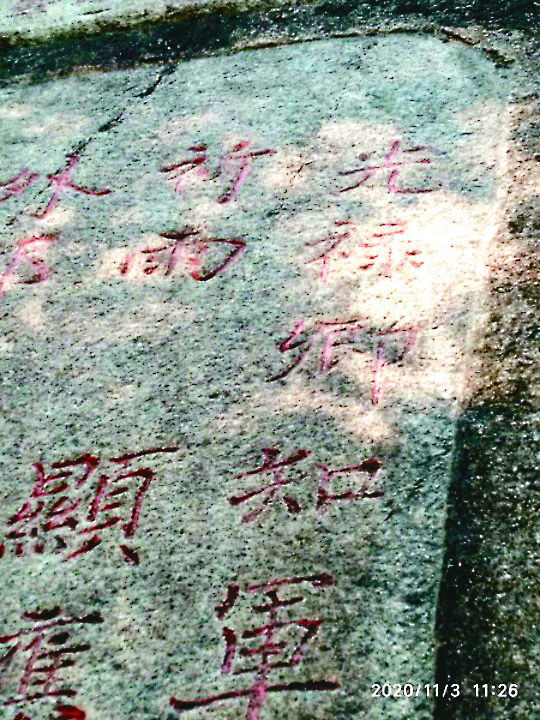 光禄卿知軍
祈雨顯
2020/11/3 11:26